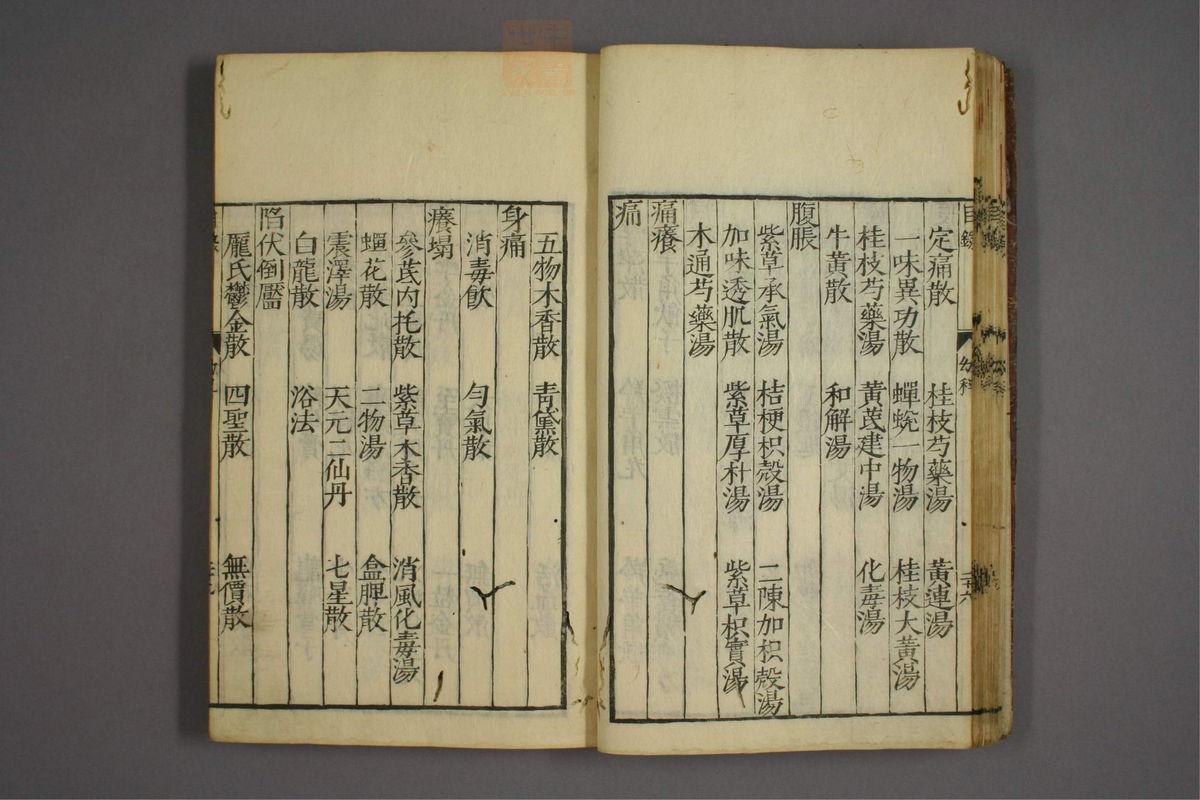 目錄 幼科 三十六
定痛散 桂枝芍藥湯 黃連湯
一味異功散 蟬蛻一物湯 桂枝大黃湯
桂枝芍藥湯 黃芪建中湯 化毒湯
牛黃散 和解湯
腹脹
紫草承氣湯 桔梗枳殼湯 二陳加枳殼湯
加味透肌散 紫草厚朴湯 紫草枳實湯
木通芍藥湯
痛癢
痛
五物木香散 青黛散
身痛
消毒飲 勻氣散
癢塌
參芪內托散 紫草木香散 消風化毒湯
蟬花散 二物湯 盒脾散
震澤湯 天元二仙丹 七星散
白龍散 浴法
陷伏倒靨
龐氏鬱金散 四聖散 無價散